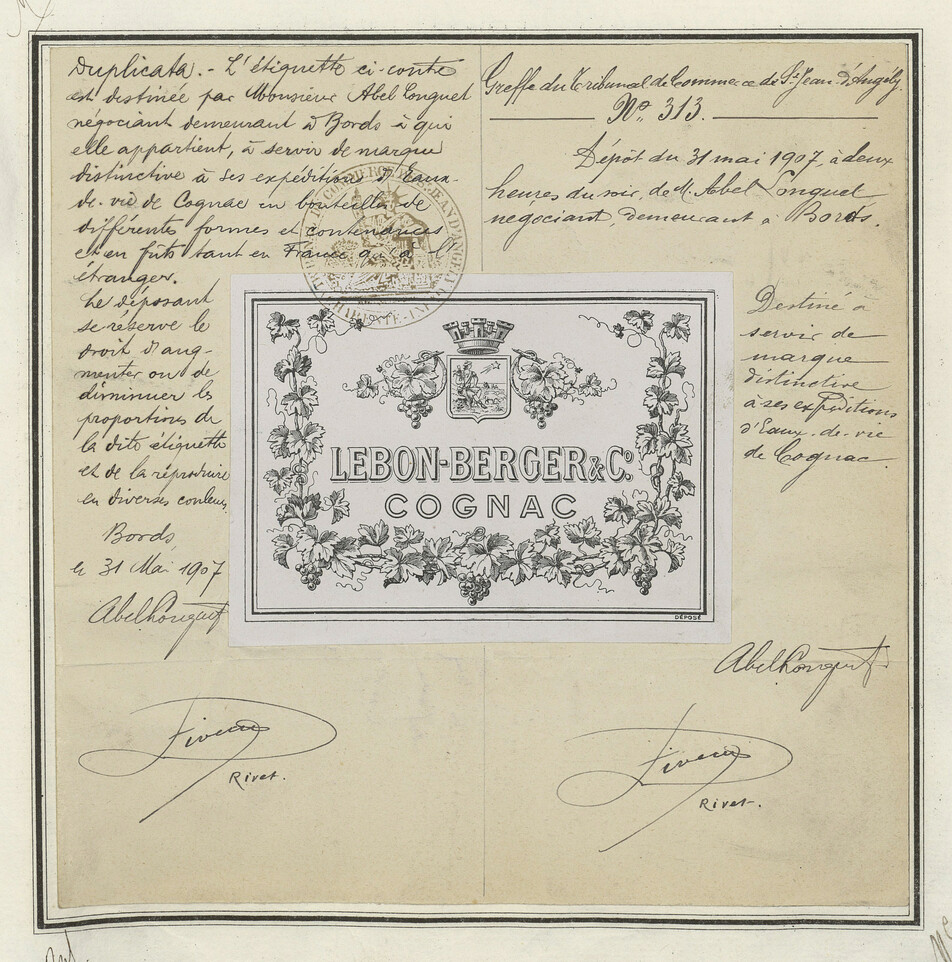 Duplicata. - L'étiquette ci-contre
est destinée par Monsieur Abel Longuet
négociant demeurant à Bords à qui
elle appartient, à servir de marque
distinctive à ses expéditions d'Eaux-
de-vie de Cognac en bouteilles de
différentes formes et contenances
et en fûts tant en France qu'à l'
étranger.
Le déposant
se réserve le
droit d'aug-
menter ou de
diminuer les
proportions de
la dite étiquette
et de la réproduire
en diverses couleurs
Bords
le 31 Mai 1907
Abel Longuet
Rivet.
Greffe du Tribunal de Commerce de St Jean-d'Angély.
No. 313.
Dépôt du 31 mai 1907, à deux
heures du soir, de M. Abel Longuet
négociant, demeurant à Bords.
LEBON-BERGER & Co.
COGNAC
DÉPOSÉ
Destiné à
servir de
marque
distinctive
à ses expéditions
d'Eaux-de-vie
de Cognac.
Abel Longuet
Rivet.